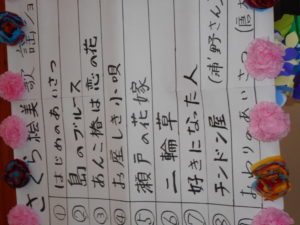 さくら絵美歌謡ショ
① はじめのあいさつ
② 島のブルース
③ あんこ椿は恋の花
④ お座しき小唄
⑤ 瀬戸の花嫁
⑥ 二輪草
⑦ 好きになった人
⑧ チンドン屋 (浦野さん
⑨ おわりのあいさつ